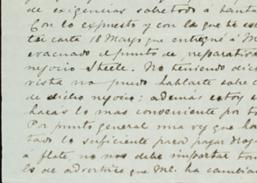 de exigencias sobre todo á
Con lo expuesto y con la que te es
tu carta 18 Mayo que entregué á M
evacuado el punto de reparativa
negocio Steele. No teniendo dic
vista no puedo hablarte sobre
de dicho negocio; además estoy
harás lo mas conveniente por
Por punto general una vez que
tado lo suficiente para pagar
a flete no nos debe importar
es de advertirte que Mc. ha cambia